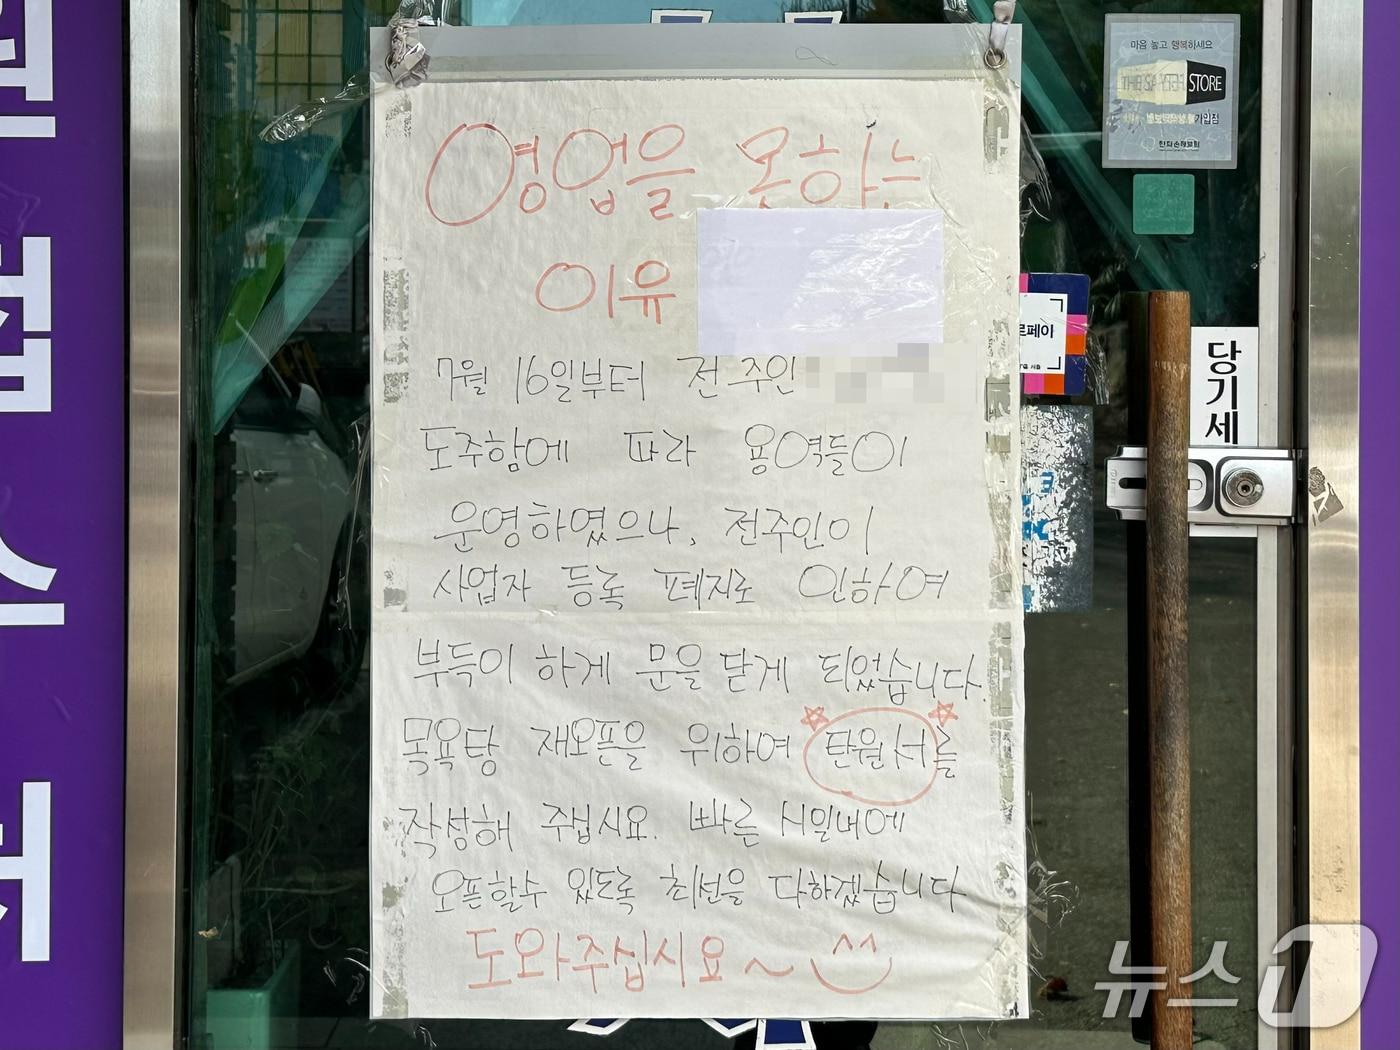 영업을 못하는
이유
7월 16일부터 전 주인
도주함에 따라 용역들이
운영하였으나, 전주인이
사업자 등록 폐지로 인하여
부득이 하게 문을 닫게 되었습니다.
목욕탕 재오픈을 위하여 탄원서를
작성해 주십시요. 빠른 시일내에
오픈할수 있도록 최선을 다하겠습니다
도와주십시요~ ^^
마음 놓고 행복하세요
STORE
가입점
한화손해보험
로페이
당기세
뉴스1